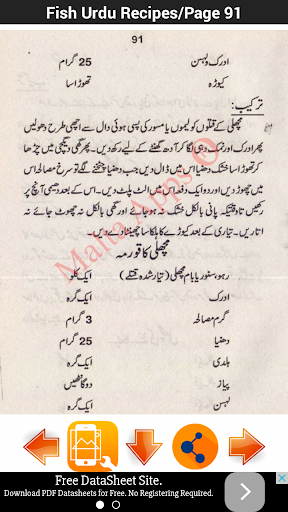 Fish Urdu Recipes/Page 91
91
ادرک و لہسن 25 گرام
کیوڑہ تھوڑا سا
ترکیب:
مچھلی کے قتلوں کو لیموں یا مسور کی پسی ہوئی دال سے اچھی طرح دھولیں
پھر ادرک اور نمک دہی لگا کر آدھ گھنٹے کے لیے رکھ دیں۔ پھر گھی دیگچی میں چڑھا
کر تھوڑا سا خشک دھنیا اس میں ڈال دیں جب دھنیا چٹخنے لگے تو سرخ مصالحہ اس
میں چھوڑ دیں اور دو ایک دفعہ اس میں الٹ پلٹ دیں۔ اس کے بعد دھیمی آنچ پر
رکھیں تاوقتیکہ پانی بالکل خشک نہ ہو جائے اور گھی بالکل نہ چھوٹ جائے نہ
اتاریں۔ تیاری کے بعد کیوڑے کا ہلکا سا چھینٹا دے دیں۔
مچھلی کا قورمہ
رہو سنور یا بام مچھلی (تیار شدہ قتلے) ایک کلو
ادرک ایک گرہ
گرم مصالحہ 3 گرام
دھنیا 25 گرام
ہلدی ایک گرہ
پیاز دو گانٹھیں
لہسن ایک گرہ
Malta Apps ©
Free DataSheet Site.
Download PDF Datasheets for Free. No Registering Required.